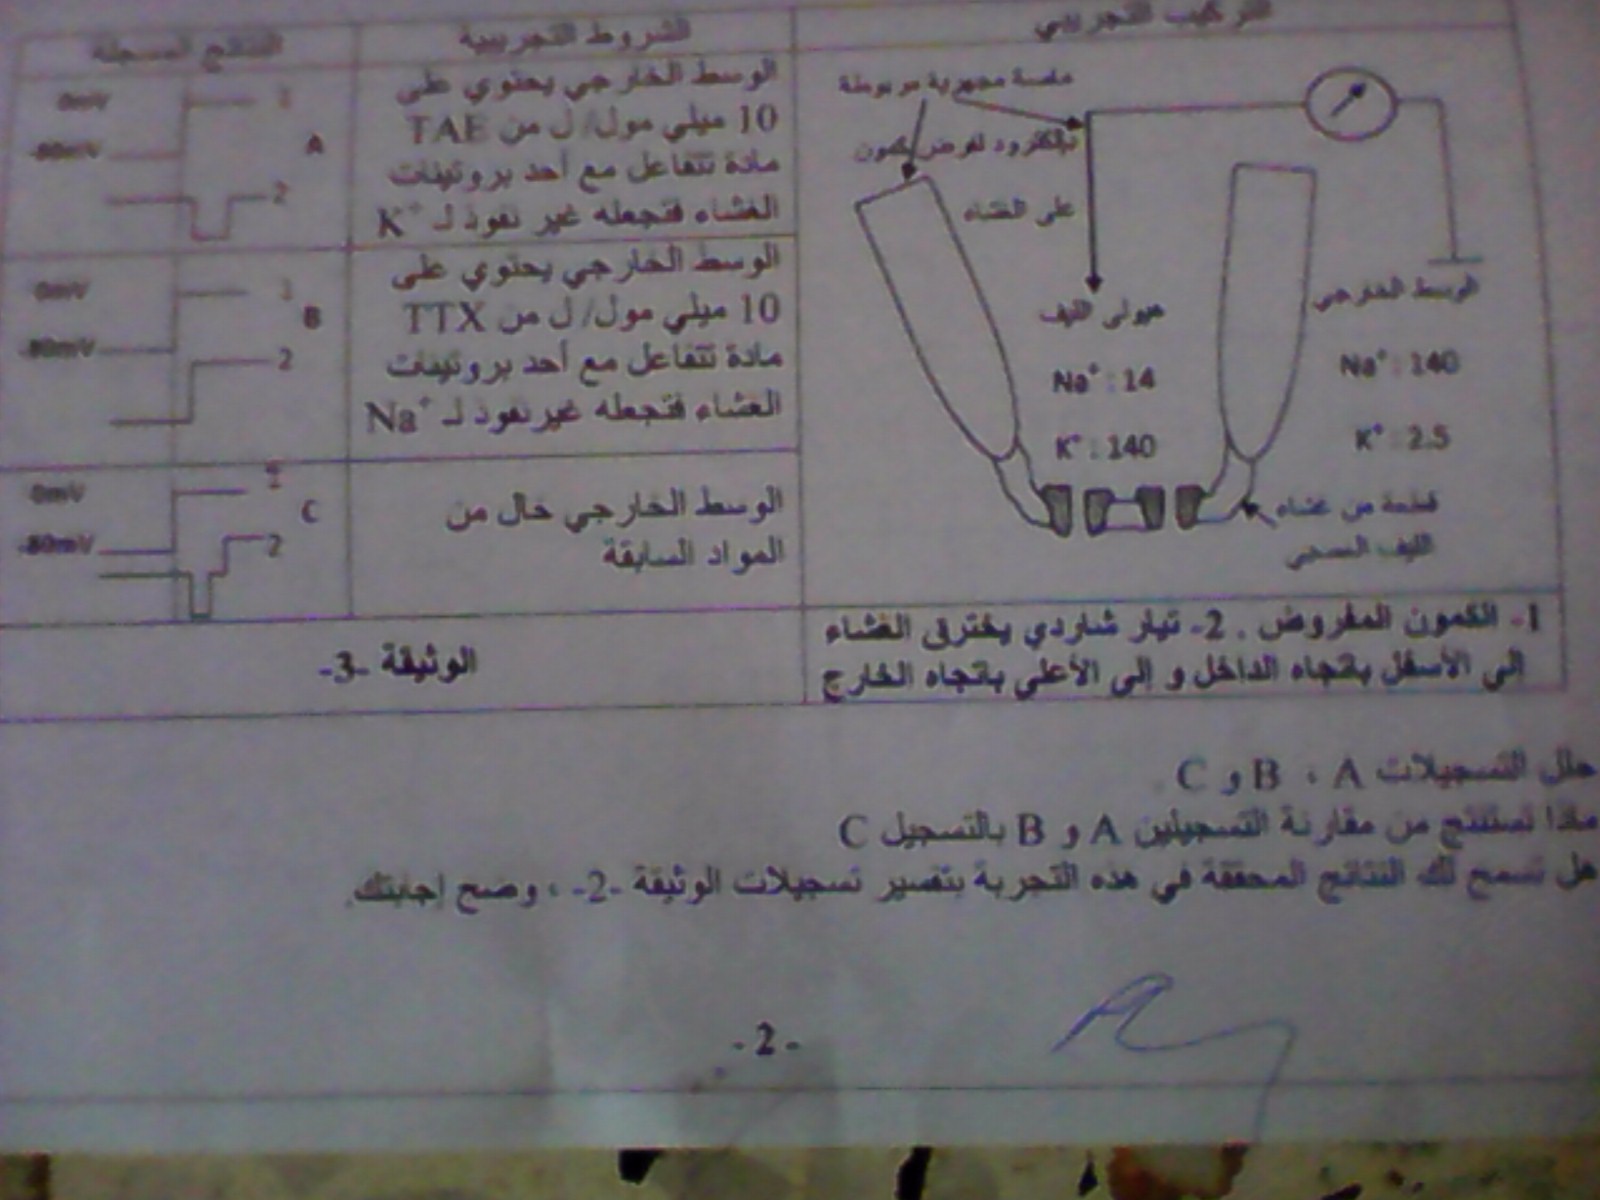 التركيب التجريبي
الشروط التجريبية
النتائج المسجلة
ماصة مجهرية مربوطة
بإلكترود لفرض كمون
على الغشاء
هيولى الليف
Na⁺ : 14
K⁺ : 140
الوسط الخارجي
Na⁺ : 140
K⁺ : 2.5
قطعة من غشاء
الليف العصبي
الوسط الخارجي يحتوي على
10 ميلي مول/ ل من TAE
مادة تتفاعل مع أحد بروتينات
الغشاء فتجعله غير نفوذ لـ K⁺
0mV
1
-80mV
A
2
الوسط الخارجي يحتوي على
10 ميلي مول/ ل من TTX
مادة تتفاعل مع أحد بروتينات
الغشاء فتجعله غير نفوذ لـ Na⁺
0mV
1
B
-80mV
2
الوسط الخارجي خال من
المواد السابقة
0mV
1
C
-80mV
2
1- الكمون المفروض . 2- تيار شاردي يخترق الغشاء
إلى الأسفل باتجاه الداخل و إلى الأعلى باتجاه الخارج
الوثيقة -3-
حلل التسجيلات A ، B و C .
ماذا تستنتج من مقارنة التسجيلين A و B بالتسجيل C
هل تسمح لك النتائج المحققة في هذه التجربة بتفسير تسجيلات الوثيقة -2- ، وضح إجابتك.
- 2 -